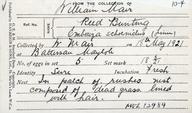 FROM THE COLLECTION OF
William Mair
Reed Bunting
Emberiza schoeniclus (Linn)
Collected by W Mair on 18th May 1921
at Batterson Maybole
No. of eggs in set 5 Set mark 18/5
Identity Sure Incubation Fresh
Nest Patch of rushes nest
composed of dead grass lined
with hair